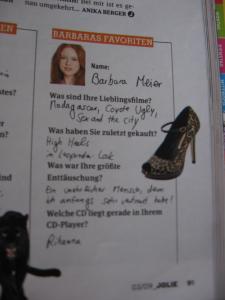 nau umgekehrt... ANIKA BERGER
BARBARAS FAVORITEN
Name:
Barbara Meier
Was sind Ihre Lieblingsfilme?
Madagascar, Coyote Ugly,
Sex and the City
Was haben Sie zuletzt gekauft?
High Heels
in Leoparden Look
Was war Ihre größte
Enttäuschung?
Ein unehrlicher Mensch, dem
ich anfangs sehr vertraut habe!
Welche CD liegt gerade in Ihrem
CD-Player?
Rihanna
03/09 JOLIE 91